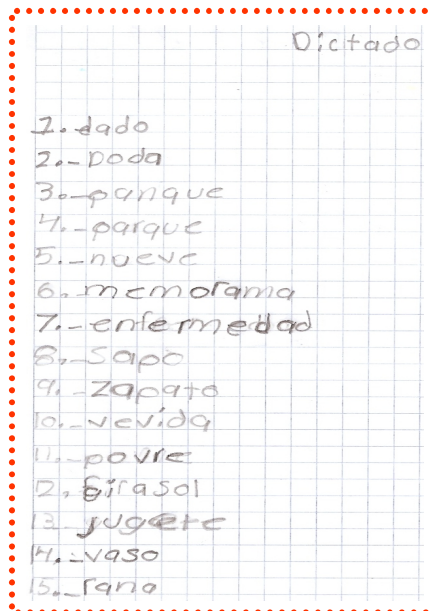 Dictado
1.-dado
2.-Doda
3.-panque
4.-parque
5.-nueve
6.-memorama
7.-enfermedad
8.-Sapo
9.-zapato
10.-vevida
11.-povre
12.Girasol
13-jugete
14.-vaso
15.-rana